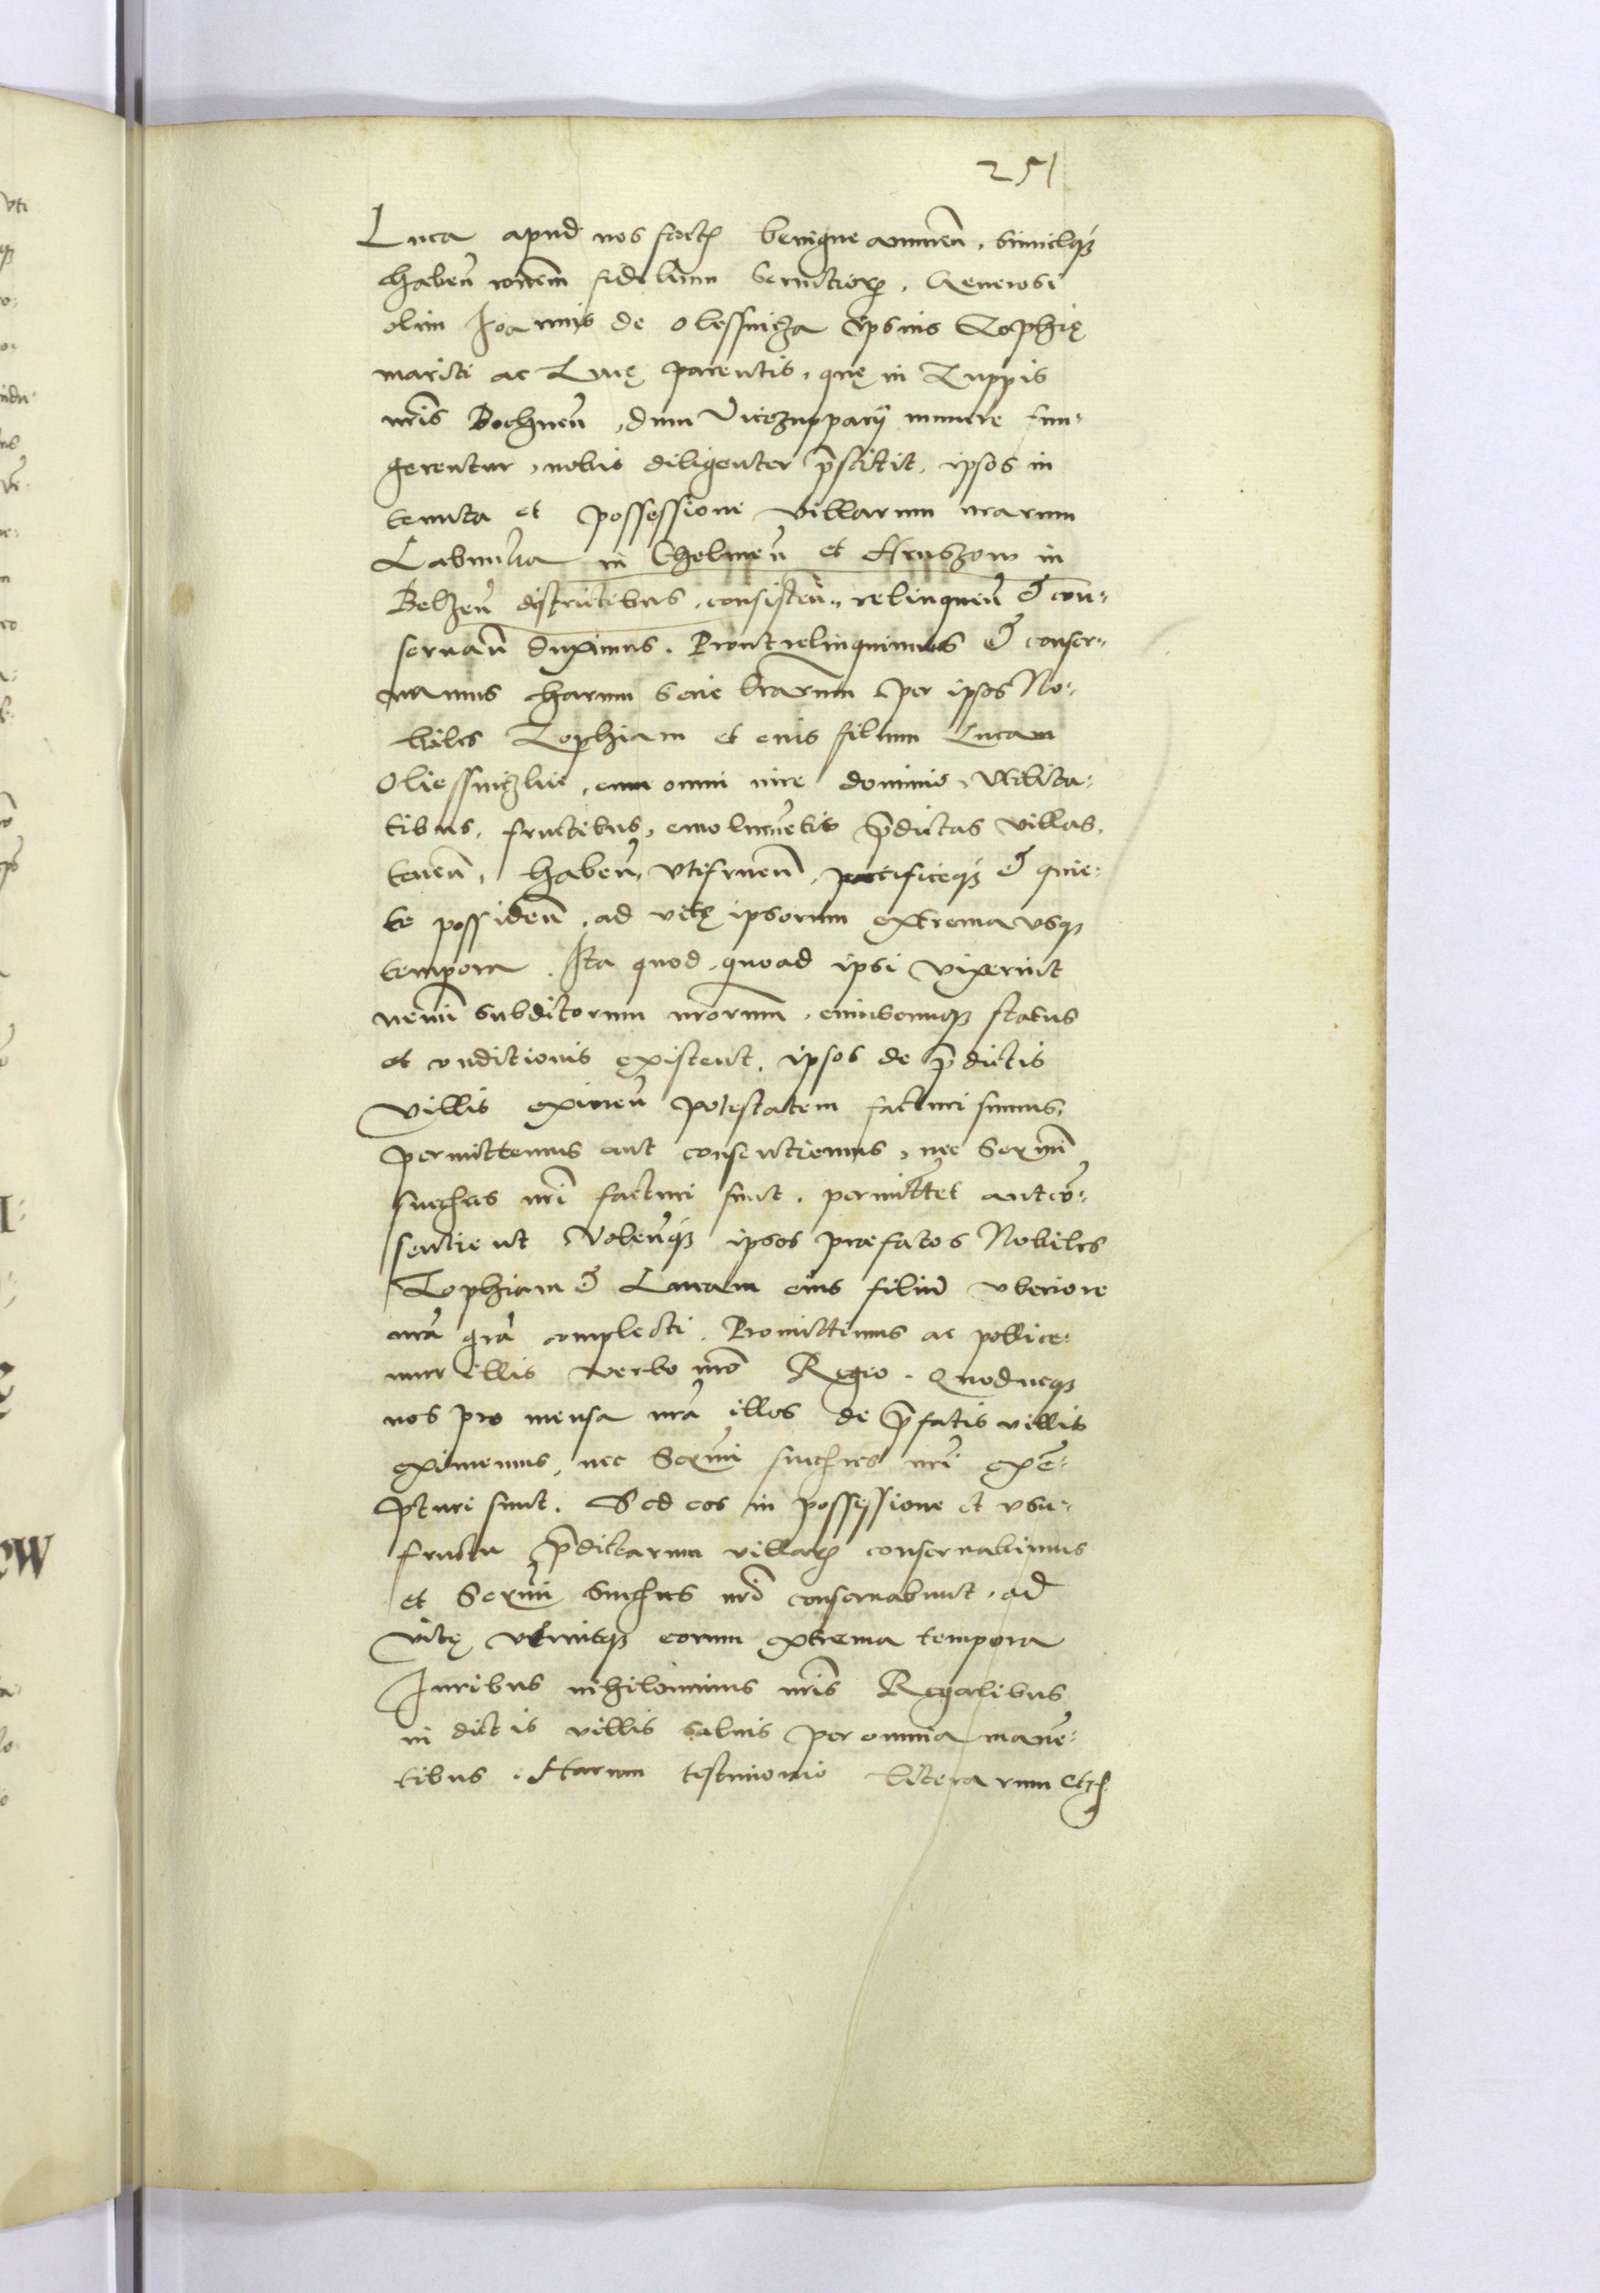 251
Luca apud nos factꝭ benigne annuen̄. simulq3
haben̄ ronem̄ fidelium seruitioꝝ. Generosi
olim Ioannis de Olessnicza ipsius Zophię
mariti ac Lucę parentis, quę in Zuppis
nr̄is Bochnen̄, dum Vicezupparij munere fun-
gerentur, nobis diligenter p̄stitit, ipsos in
tenuta et possessione villarum nrarum
Labunÿa in Chelmen̄ et Hruszow in
Belzen̄ districtibus, consisten̄, relinquen̄ & con-
seruan̄ duximus. Prout relinquimus & conser-
uamus harum serie lr̄arum per ipsos No-
biles Zophiam et eius filium Lucam
Oliessniczkie, cum omni iure dominio, Vtilita-
tibus, fructibus, emolumētis p̄dictas villas,
tenen̄, haben̄, vtifruen̄, pacificeq3 & quie-
te possiden̄, ad vitę ipsorum extrema vsq3
tempora. Ita quod, quoad ipsi vixerint
nemini subditorum nrorum, cuiuscunq3 status
et conditionis existent, ipsos de p̄dictis
Villis eximen̄ potestatem facturi sumus,
permittemus aut consentiemus, nec Sermi
succֿres nr̄i facturi sunt, permittēt aut cō-
sentient Volen̄q3 ipsos præfatos Nobiles
Zophiam & Lucam eius filiū vberiore
nr̄a gr̄a complecti. Promittimus ac pollice-
mur illis verbo nr̄o Regio. Quod neq3
nos pro mensa nr̄a illos de p̄fatis villis
eximemus, nec Sermi succֿres nr̄i exē-
pturi sunt. Sed eos in possessione et vsu-
fructu p̄dictarum villaꝝ conseruabimus
et Sermi Succֿres nr̄i conseruabunt, ad
vitę vtriusq3 eorum extrema tempora
Iuribus nihilominus nr̄is Regalibus
in dictis villis saluis per omnia manē-
tibus. Harum testimonio literarum etc.